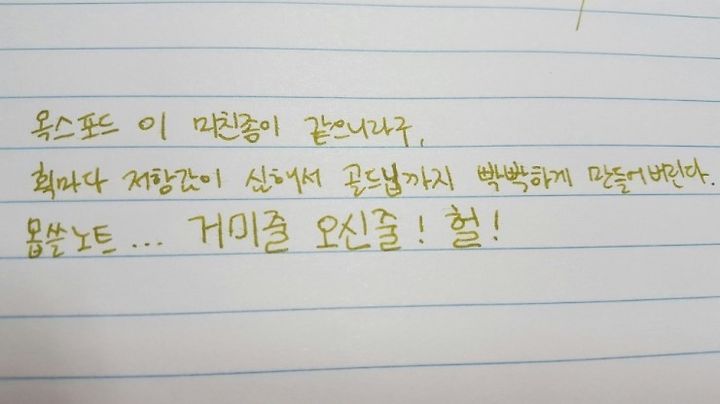 옥스포드 이 미친종이 같으니라구,
획마다 저항값이 심해서 골드닙까지 빡빡하게 만들어버린다.
몹쓸노트... 거미줄 오신줄! 헐!